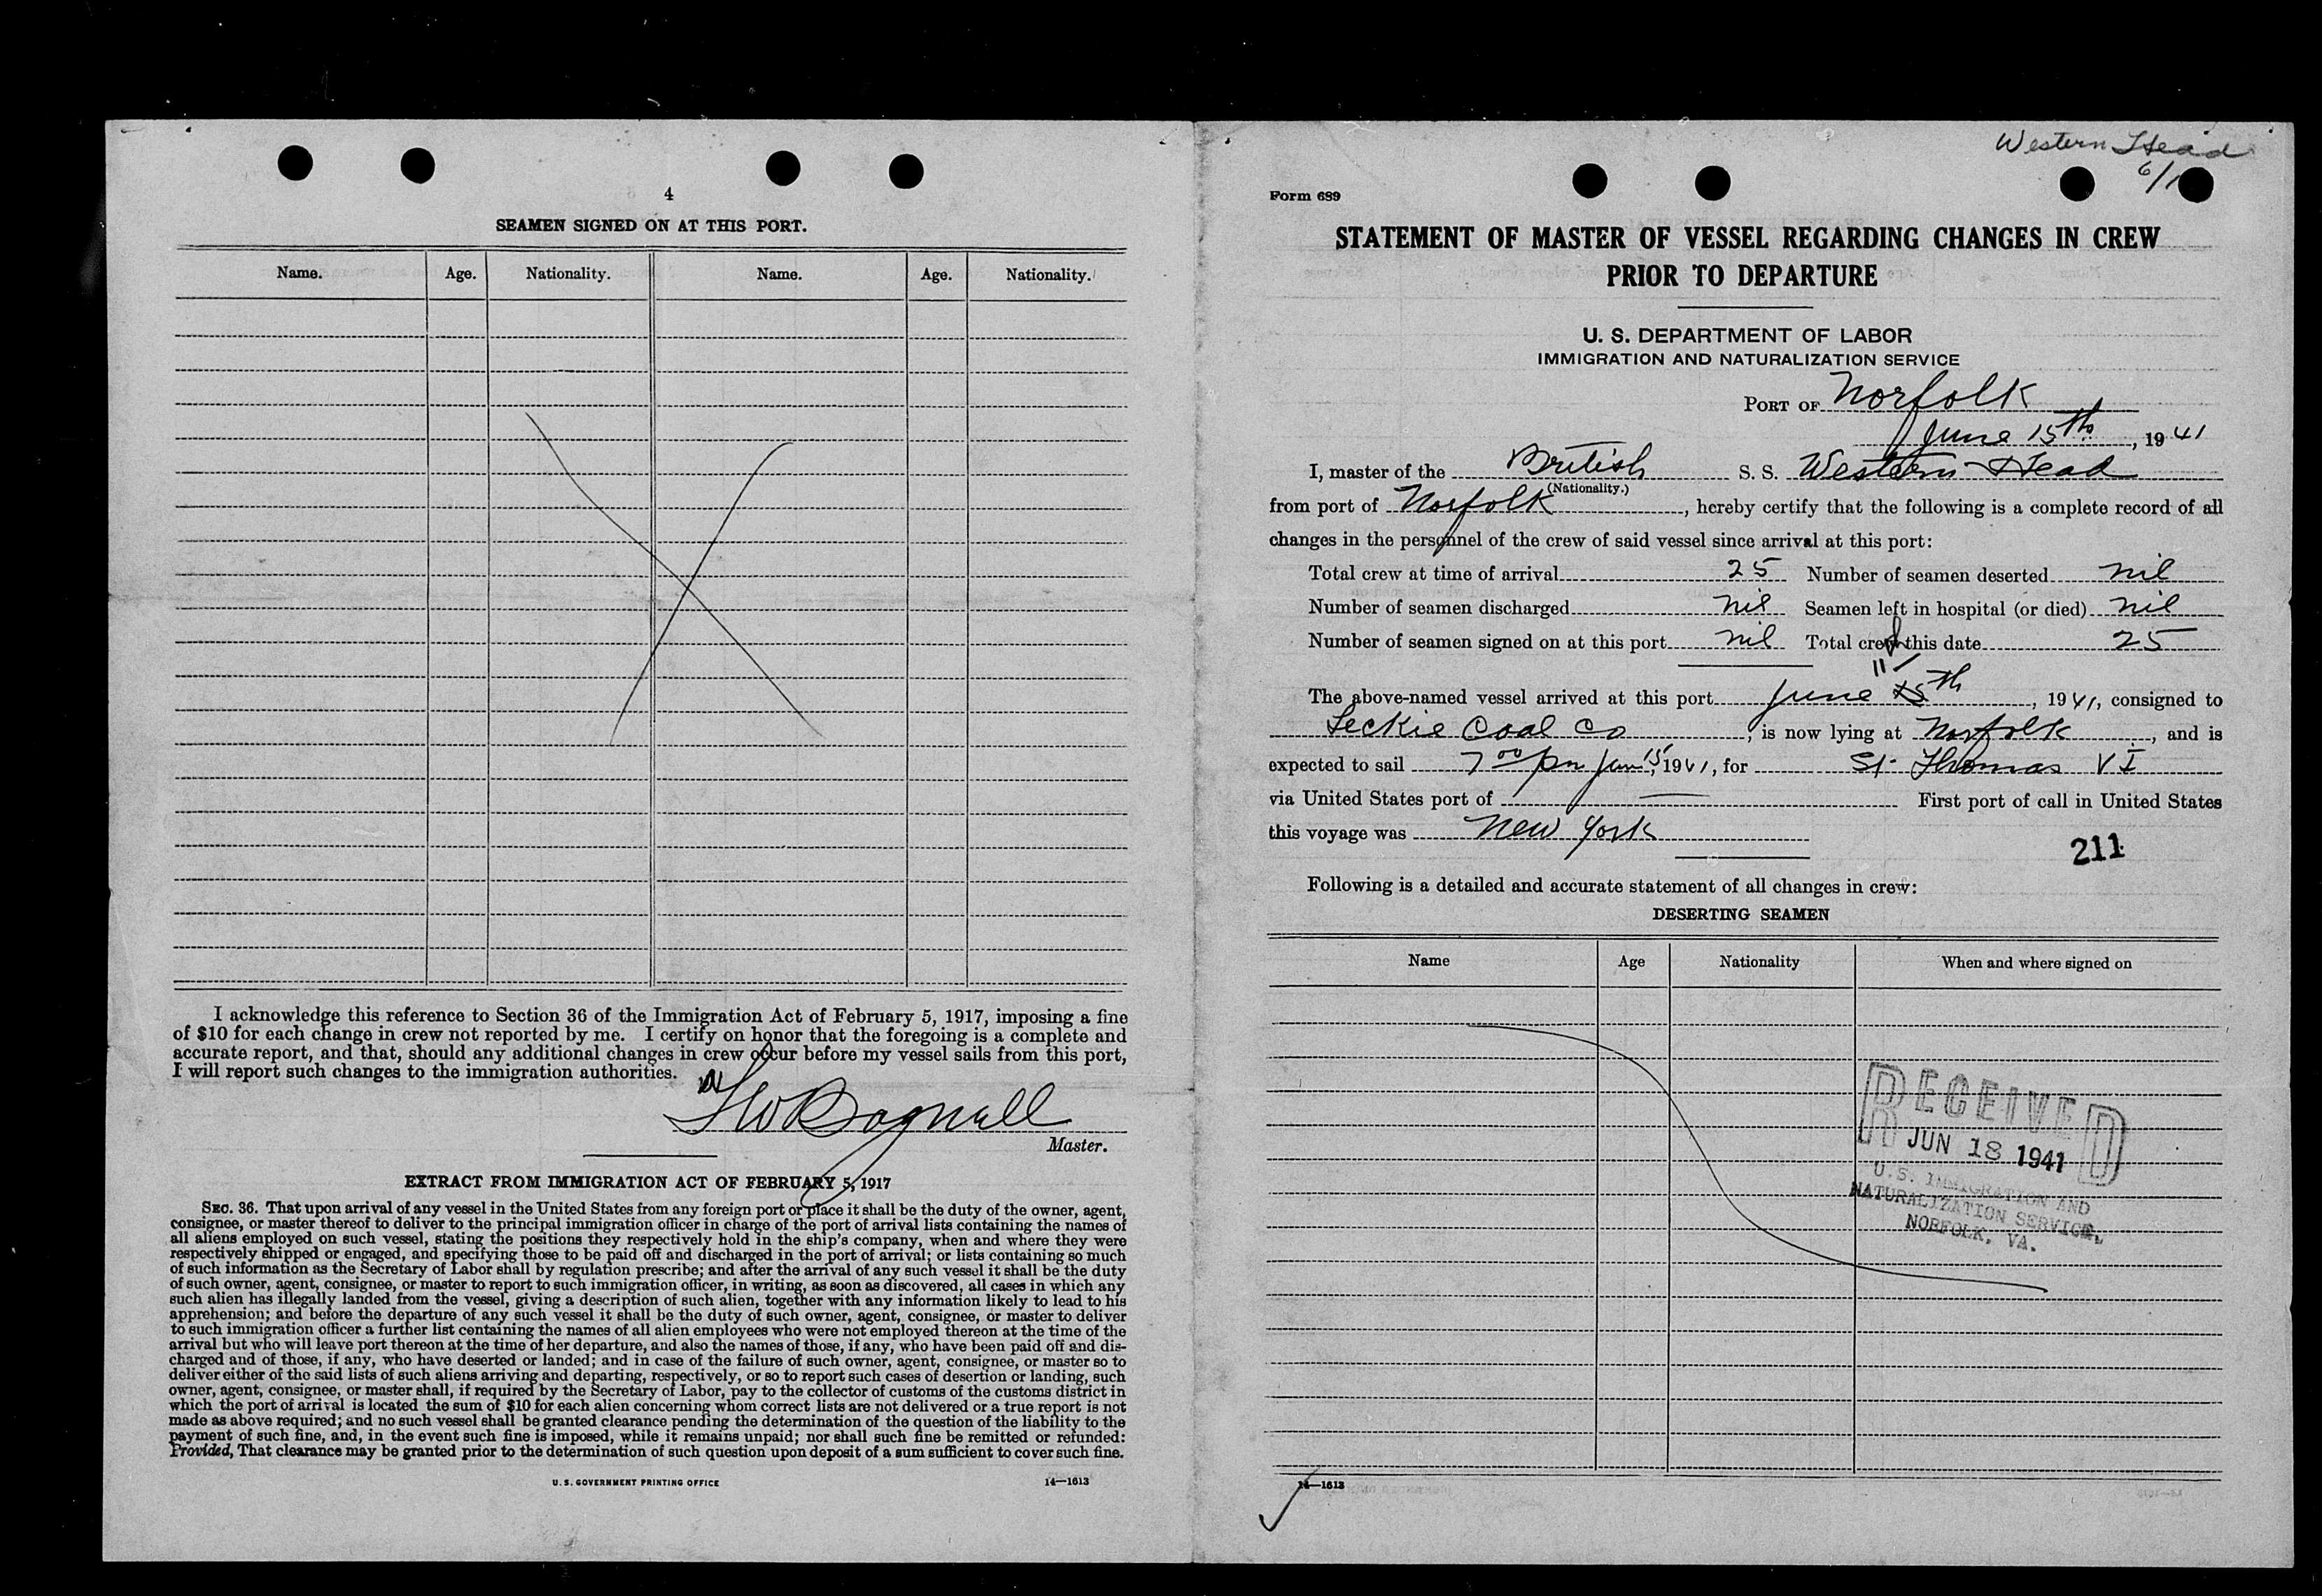 4
SEAMEN SIGNED ON AT THIS PORT.
Name. Age. Nationality. Name. Age. Nationality.
I acknowledge this reference to Section 36 of the Immigration Act of February 5, 1917, imposing a fine
of $10 for each change in crew not reported by me. I certify on honor that the foregoing is a complete and
accurate report, and that, should any additional changes in crew occur before my vessel sails from this port,
I will report such changes to the immigration authorities.
Bagnall
Master.
EXTRACT FROM IMMIGRATION ACT OF FEBRUARY 5, 1917
SEC. 36. That upon arrival of any vessel in the United States from any foreign port or place it shall be the duty of the owner, agent,
consignee, or master thereof to deliver to the principal immigration officer in charge of the port of arrival lists containing the names of
all aliens employed on such vessel, stating the positions they respectively hold in the ship's company, when and where they were
respectively shipped or engaged, and specifying those to be paid off and discharged in the port of arrival; or lists containing so much
of such information as the Secretary of Labor shall by regulation prescribe; and after the arrival of any such vessel it shall be the duty
of such owner, agent, consignee, or master to report to such immigration officer, in writing, as soon as discovered, all cases in which any
such alien has illegally landed from the vessel, giving a description of such alien, together with any information likely to lead to his
apprehension; and before the departure of any such vessel it shall be the duty of such owner, agent, consignee, or master to deliver
to such immigration officer a further list containing the names of all alien employees who were not employed thereon at the time of the
arrival but who will leave port thereon at the time of her departure, and also the names of those, if any, who have been paid off and dis-
charged and of those, if any, who have deserted or landed; and in case of the failure of such owner, agent, consignee, or master so to
deliver either of the said lists of such aliens arriving and departing, respectively, or so to report such cases of desertion or landing, such
owner, agent, consignee, or master shall, if required by the Secretary of Labor, pay to the collector of customs of the customs district in
which the port of arrival is located the sum of $10 for each alien concerning whom correct lists are not delivered or a true report is not
made as above required; and no such vessel shall be granted clearance pending the determination of the question of the liability to the
payment of such fine, and, in the event such fine is imposed, while it remains unpaid; nor shall such fine be remitted or refunded:
Provided, That clearance may be granted prior to the determination of such question upon deposit of a sum sufficient to cover such fine.
U. S. GOVERNMENT PRINTING OFFICE 14—1613
Western Head
6/1
Form 689
STATEMENT OF MASTER OF VESSEL REGARDING CHANGES IN CREW
PRIOR TO DEPARTURE
U. S. DEPARTMENT OF LABOR
IMMIGRATION AND NATURALIZATION SERVICE
PORT OF Norfolk
June 15th, 1941
I, master of the British S. S. Western Head
(Nationality.)
from port of Norfolk, hereby certify that the following is a complete record of all
changes in the personnel of the crew of said vessel since arrival at this port:
Total crew at time of arrival 25 Number of seamen deserted nil
Number of seamen discharged nil Seamen left in hospital (or died) nil
Number of seamen signed on at this port nil Total crew this date 25
11
The above-named vessel arrived at this port June 15th, 1941, consigned to
Leckie Coal Co, is now lying at Norfolk, and is
expected to sail 7 00 pm June 15, 1941, for St. Thomas V I
via United States port of — First port of call in United States
this voyage was New York
211
Following is a detailed and accurate statement of all changes in crew:
DESERTING SEAMEN
Name Age Nationality When and where signed on
RECEIVED
JUN 18 1941
U.S. IMMIGRATION AND
NATURALIZATION SERVICE,
NORFOLK, VA.
14—1613